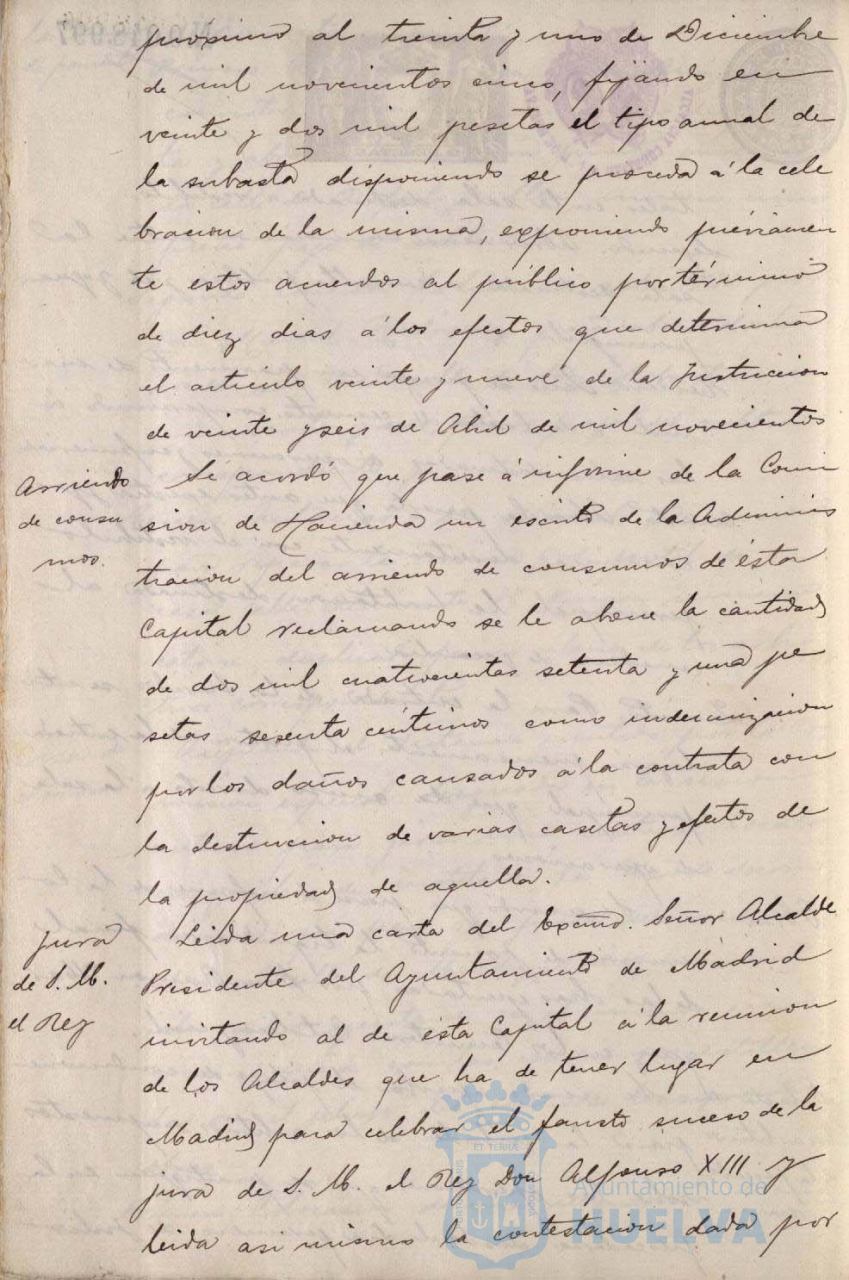 próximo al treinta y uno de Diciembre
de mil novecientos cinco, fijando en
veinte y dos mil pesetas el tipo anual de
la subasta disponiendo se proceda á la cele
bracion de la misma, exponiendo préviamen
te estos acuerdos al público por término
de diez dias á los efectos que determina
el artículo veinte y nueve de la Instruccion
de veinte y seis de Abril de mil novecientos
Arriendo
de consu
mos.
Se acordó que pase á informe de la Comi
sion de Hacienda un escrito de la Adminis
tracion del arriendo de consumos de ésta
Capital reclamando se le abone la cantidad
de dos mil cuatrocientas setenta y una pe
setas sesenta céntimos como indemnizacion
por los daños causados á la contrata con
la destruccion de varias casetas y efectos de
la propiedad de aquella.
Jura
de S. M.
el Rey
Leida una carta del Excmo. Señor Alcalde
Presidente del Ayuntamiento de Madrid
invitando al de ésta Capital á la reunion
de los Alcaldes que ha de tener lugar en
Madrid para celebrar el fausto suceso de la
jura de S. M. el Rey Don Alfonso XIII y
leida asi mismo la contestacion dada por
Ayuntamiento de
HUELVA